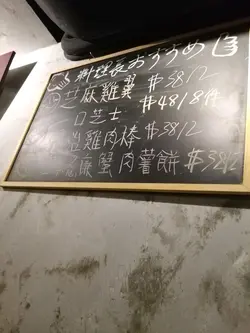 料理長おすすめ
芝麻雞翼 $58/2
口芝士 $48/8件
雞肉棒 $38/2
蟹肉薯餅 $38/2